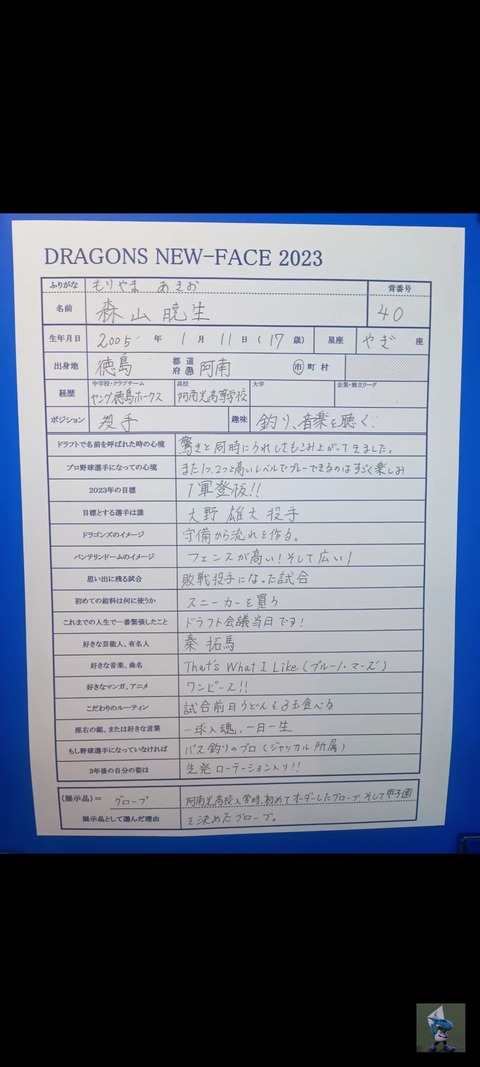 DRAGONS NEW-FACE 2023
ふりがな もりやま あきお 背番号
名前 森山 暁生 40
生年月日 2005 年 1 月 11 日 ( 17 歳) 星座 やぎ 座
出身地 徳島 都道府県 阿南 市町村
経歴 中学校・クラブチーム ヤング徳島ホークス 高校 阿南光高等学校 大学 企業・独立リーグ
ポジション 投手 趣味 釣り、音楽を聴く
ドラフトで名前を呼ばれた時の心境 驚きと同時にうれしさもこみ上がってきました。
プロ野球選手になっての心境 また1つ、2つと高いレベルでプレーできるのはすごく楽しみ
2023年の目標 1軍登板!!
目標とする選手は誰 大野 雄大 投手
ドラゴンズのイメージ 守備から流れを作る。
バンテリンドームのイメージ フェンスが高い!そして広い!
思い出に残る試合 敗戦投手になった試合
初めての給料は何に使うか スニーカーを買う
これまでの人生で一番緊張したこと ドラフト会議当日です!
好きな芸能人、有名人 秦 拓馬
好きな音楽、曲名 That's What I Like (ブルーノ・マーズ)
好きなマンガ、アニメ ワンピース!!
こだわりのルーティン 試合前日うどんそるお食べる
座右の銘、または好きな言葉 一球入魂、一日一生
もし野球選手になっていなければ バス釣りのプロ (ジャッカル所属)
3年後の自分の姿は 先発ローテーション入り!!
(展示品)= グローブ 阿南光高校入学時、初めてオーダーしたグローブ、そして甲子園
展示品として選んだ理由 を決めたグローブ。